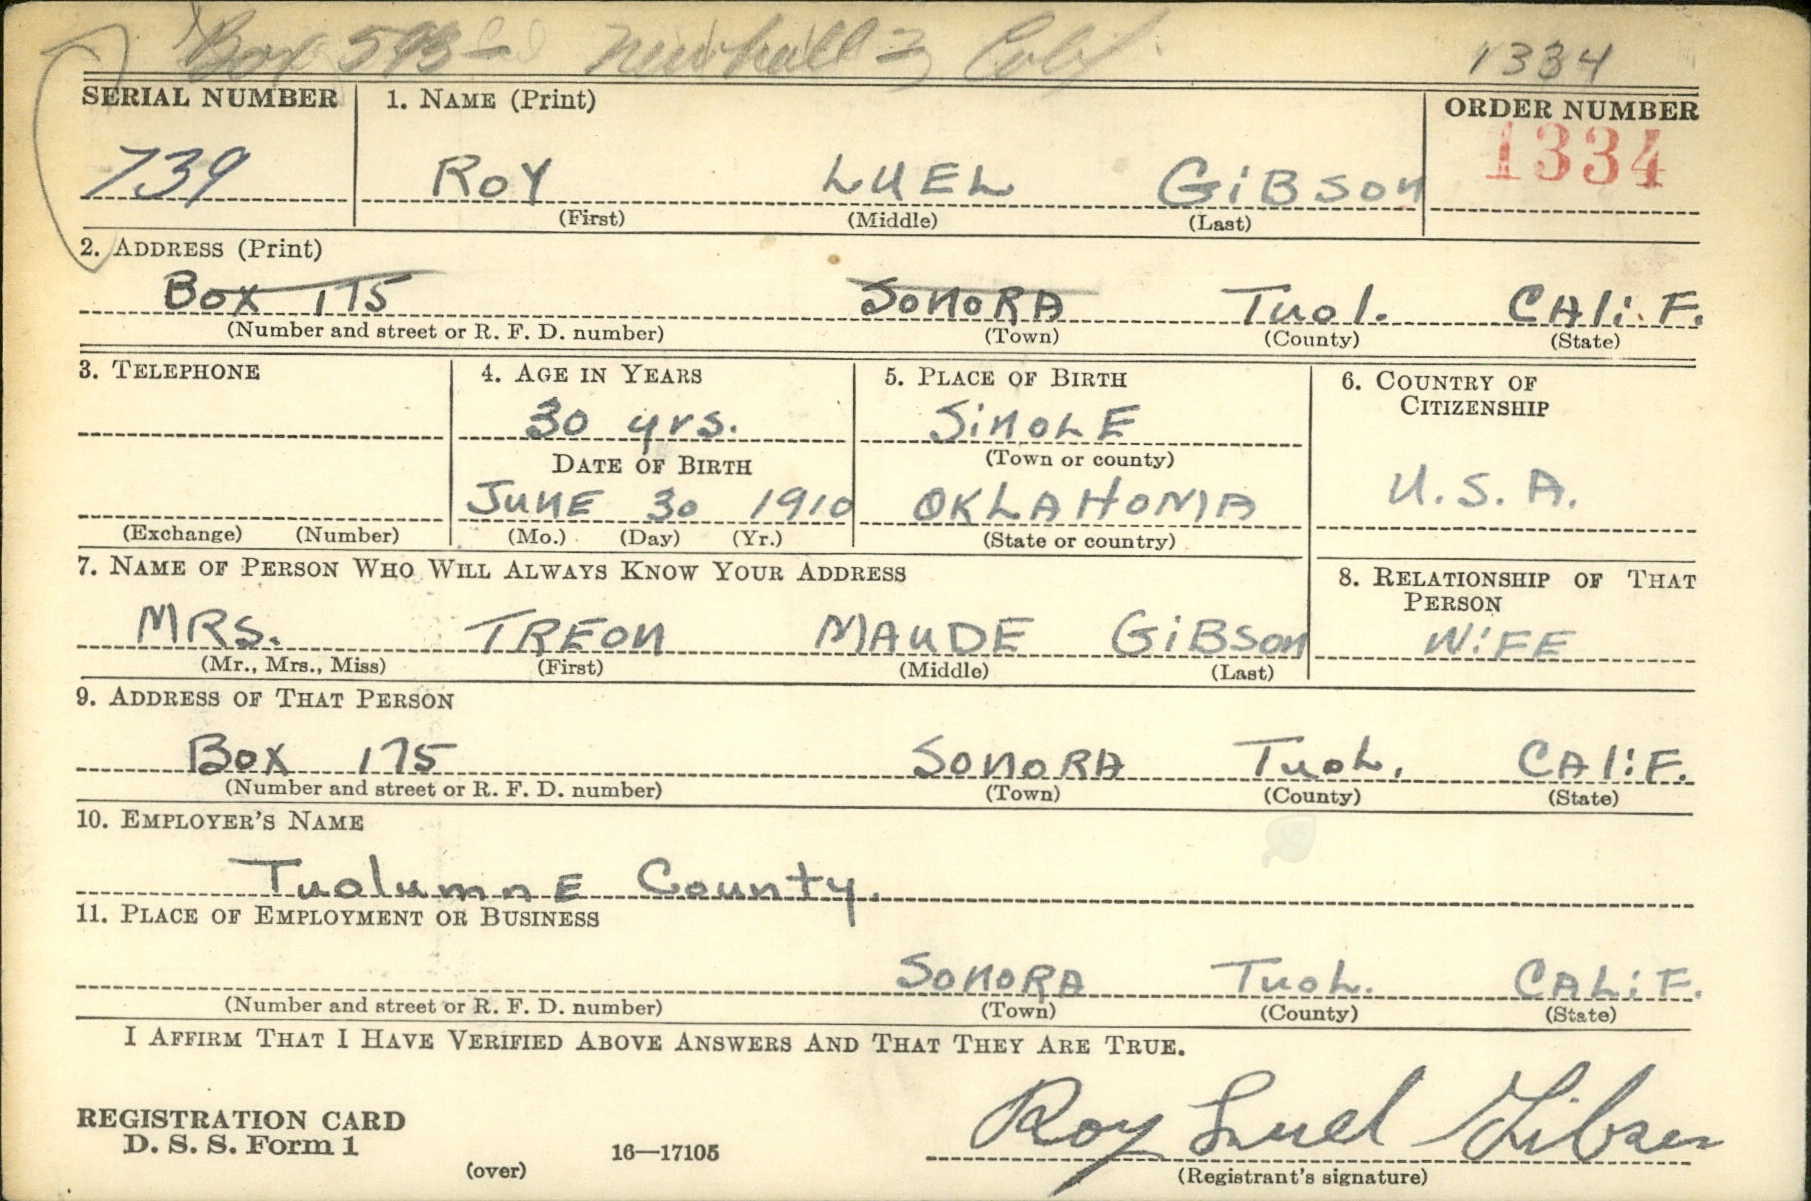 Box 593 Newhall Calif.
1334
SERIAL NUMBER
1. NAME (Print)
ORDER NUMBER
739
ROY LUEL GiBSON
1334
(First) (Middle) (Last)
2. ADDRESS (Print)
BOX 175 SONORA Tuol. CALi.F.
(Number and street or R. F. D. number) (Town) (County) (State)
3. TELEPHONE
4. AGE IN YEARS
5. PLACE OF BIRTH
6. COUNTRY OF
CITIZENSHIP
30 yrs.
SiNOLE
DATE OF BIRTH
(Town or county)
U.S.A.
JUNE 30 1910
OKLAHOMA
(Exchange) (Number)
(Mo.) (Day) (Yr.)
(State or country)
7. NAME OF PERSON WHO WILL ALWAYS KNOW YOUR ADDRESS
8. RELATIONSHIP OF THAT
PERSON
MRS. TREON MAUDE GiBSON
WiFE
(Mr., Mrs., Miss) (First) (Middle) (Last)
9. ADDRESS OF THAT PERSON
BOX 175 SONORA TuoL. CALiF.
(Number and street or R. F. D. number) (Town) (County) (State)
10. EMPLOYER'S NAME
TuolumnE County.
11. PLACE OF EMPLOYMENT OR BUSINESS
SONORA TuoL. CALiF.
(Number and street or R. F. D. number) (Town) (County) (State)
I AFFIRM THAT I HAVE VERIFIED ABOVE ANSWERS AND THAT THEY ARE TRUE.
Roy Luel Gibson
REGISTRATION CARD
D. S. S. Form 1
(over)
16—17105
(Registrant's signature)